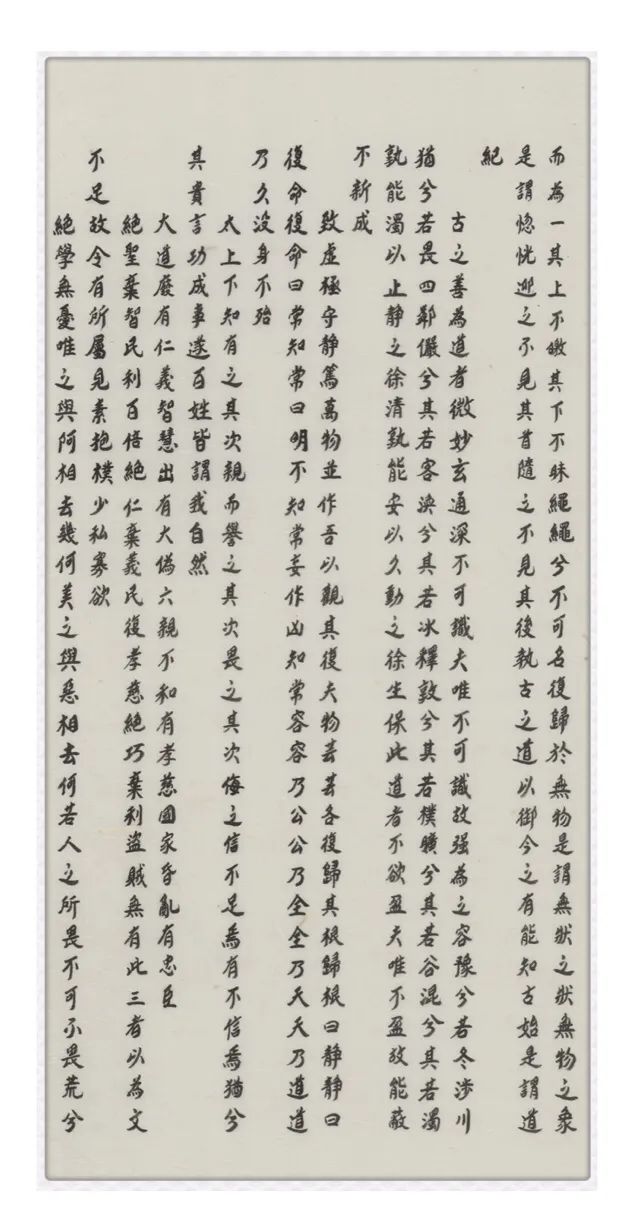 而為一其上不皦其下不昧繩繩兮不可名復歸於無物是謂無狀之狀無物之象
是謂惚恍迎之不見其首隨之不見其後執古之道以御今之有能知古始是謂道
紀
古之善為道者微妙玄通深不可識夫唯不可識故强為之容豫兮若冬涉川
猶兮若畏四鄰儼兮其若客渙兮其若冰釋敦兮其若樸曠兮其若谷混兮其若濁
孰能濁以止静之徐清孰能安以久動之徐生保此道者不欲盈夫唯不盈故能蔽
不新成
致虛極守静篤萬物並作吾以觀其復夫物芸芸各復歸其根歸根曰静静曰
復命復命曰常知常曰明不知常妄作凶知常容容乃公公乃全全乃天天乃道道
乃久没身不殆
太上下知有之其次親而譽之其次畏之其次侮之信不足焉有不信焉猶兮
其貴言功成事遂百姓皆謂我自然
大道廢有仁義智慧出有大偽六親不和有孝慈國家昏亂有忠臣
絕聖棄智民利百倍絕仁棄義民復孝慈絕巧棄利盜賊無有此三者以為文
不足故令有所屬見素抱樸少私寡欲
絕學無憂唯之與阿相去幾何美之與惡相去何若人之所畏不可不畏荒兮